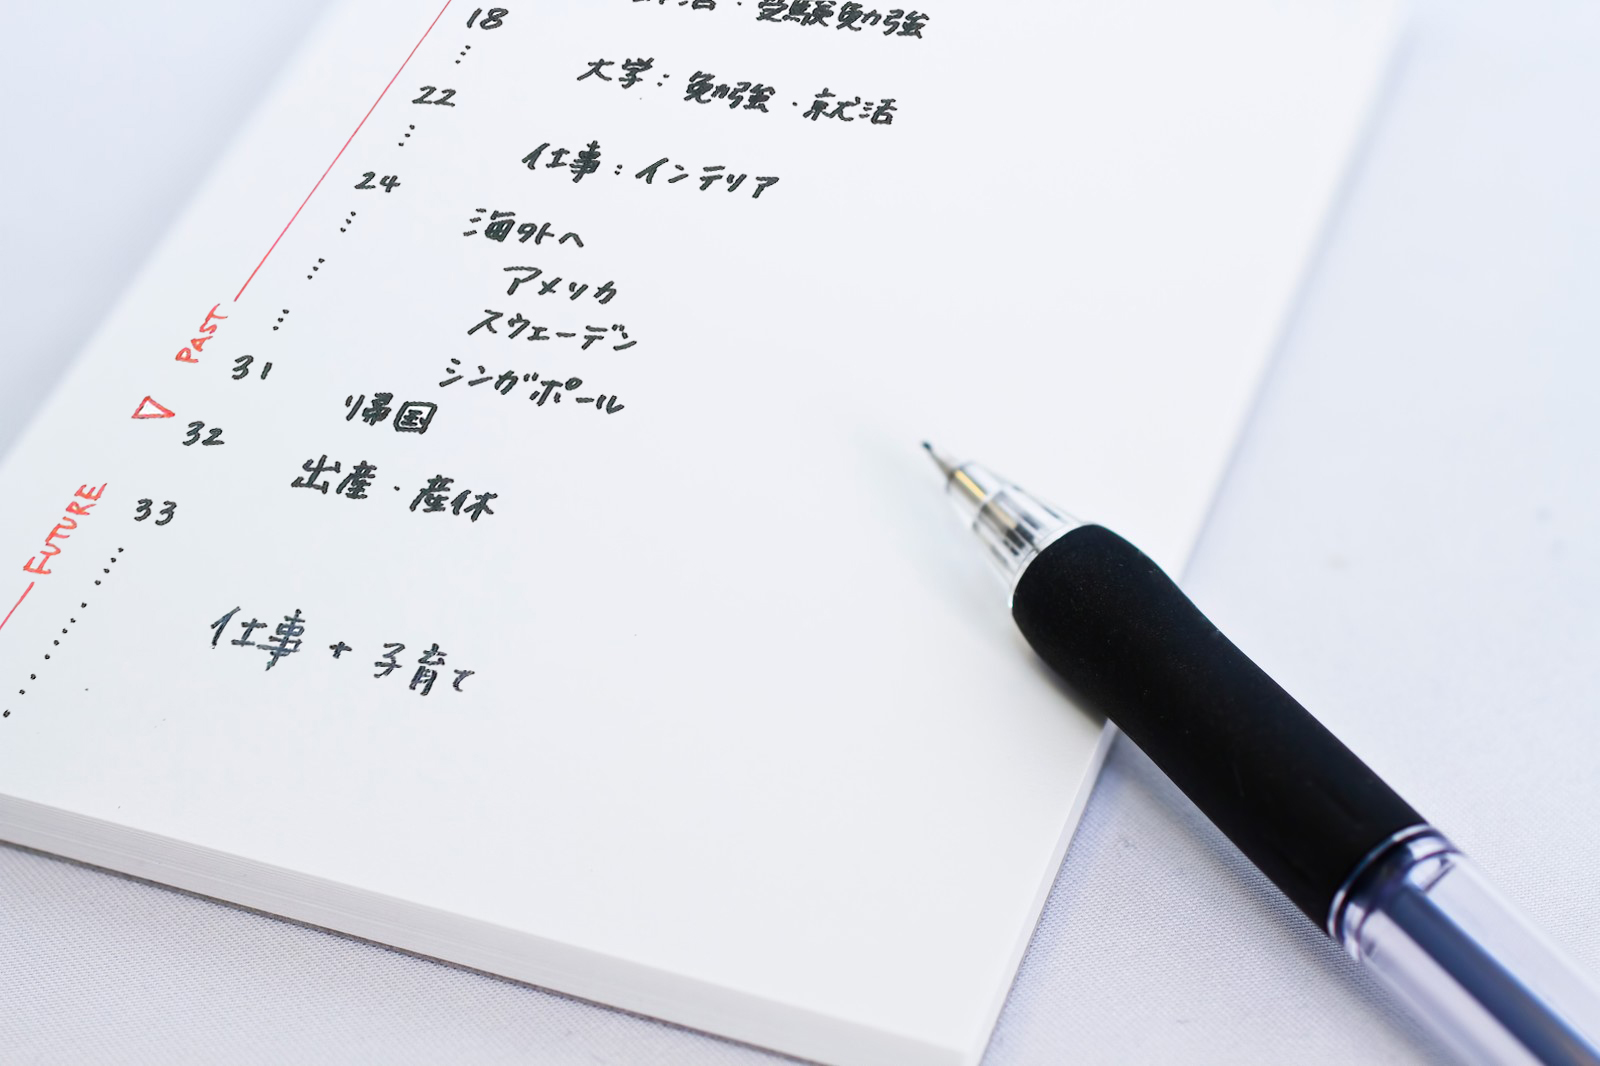 受験勉強
18
大学：勉強・就活
22
仕事：インテリア
24
海外へ
アメリカ
スウェーデン
シンガポール
PAST
31
帰国
32
出産・産休
FUTURE
33
仕事＋子育て